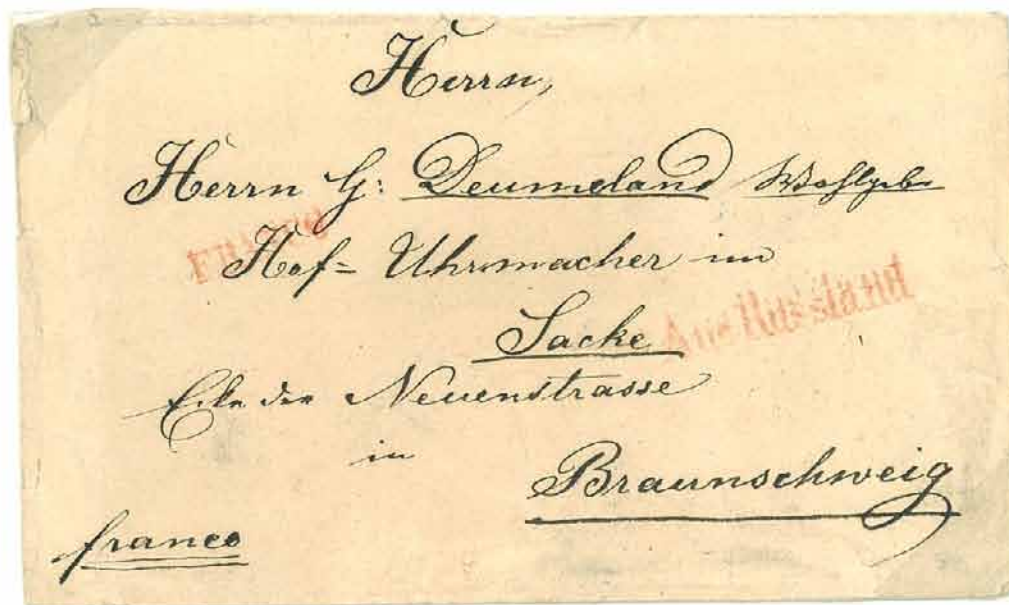 Herrn,
Herrn G: Deumeland Wohlgeb
FRANCO
Hof- Uhrmacher im
Aus Russland
Sacke
Ecke der Neuenstrasse
in
Braunschweig
franco